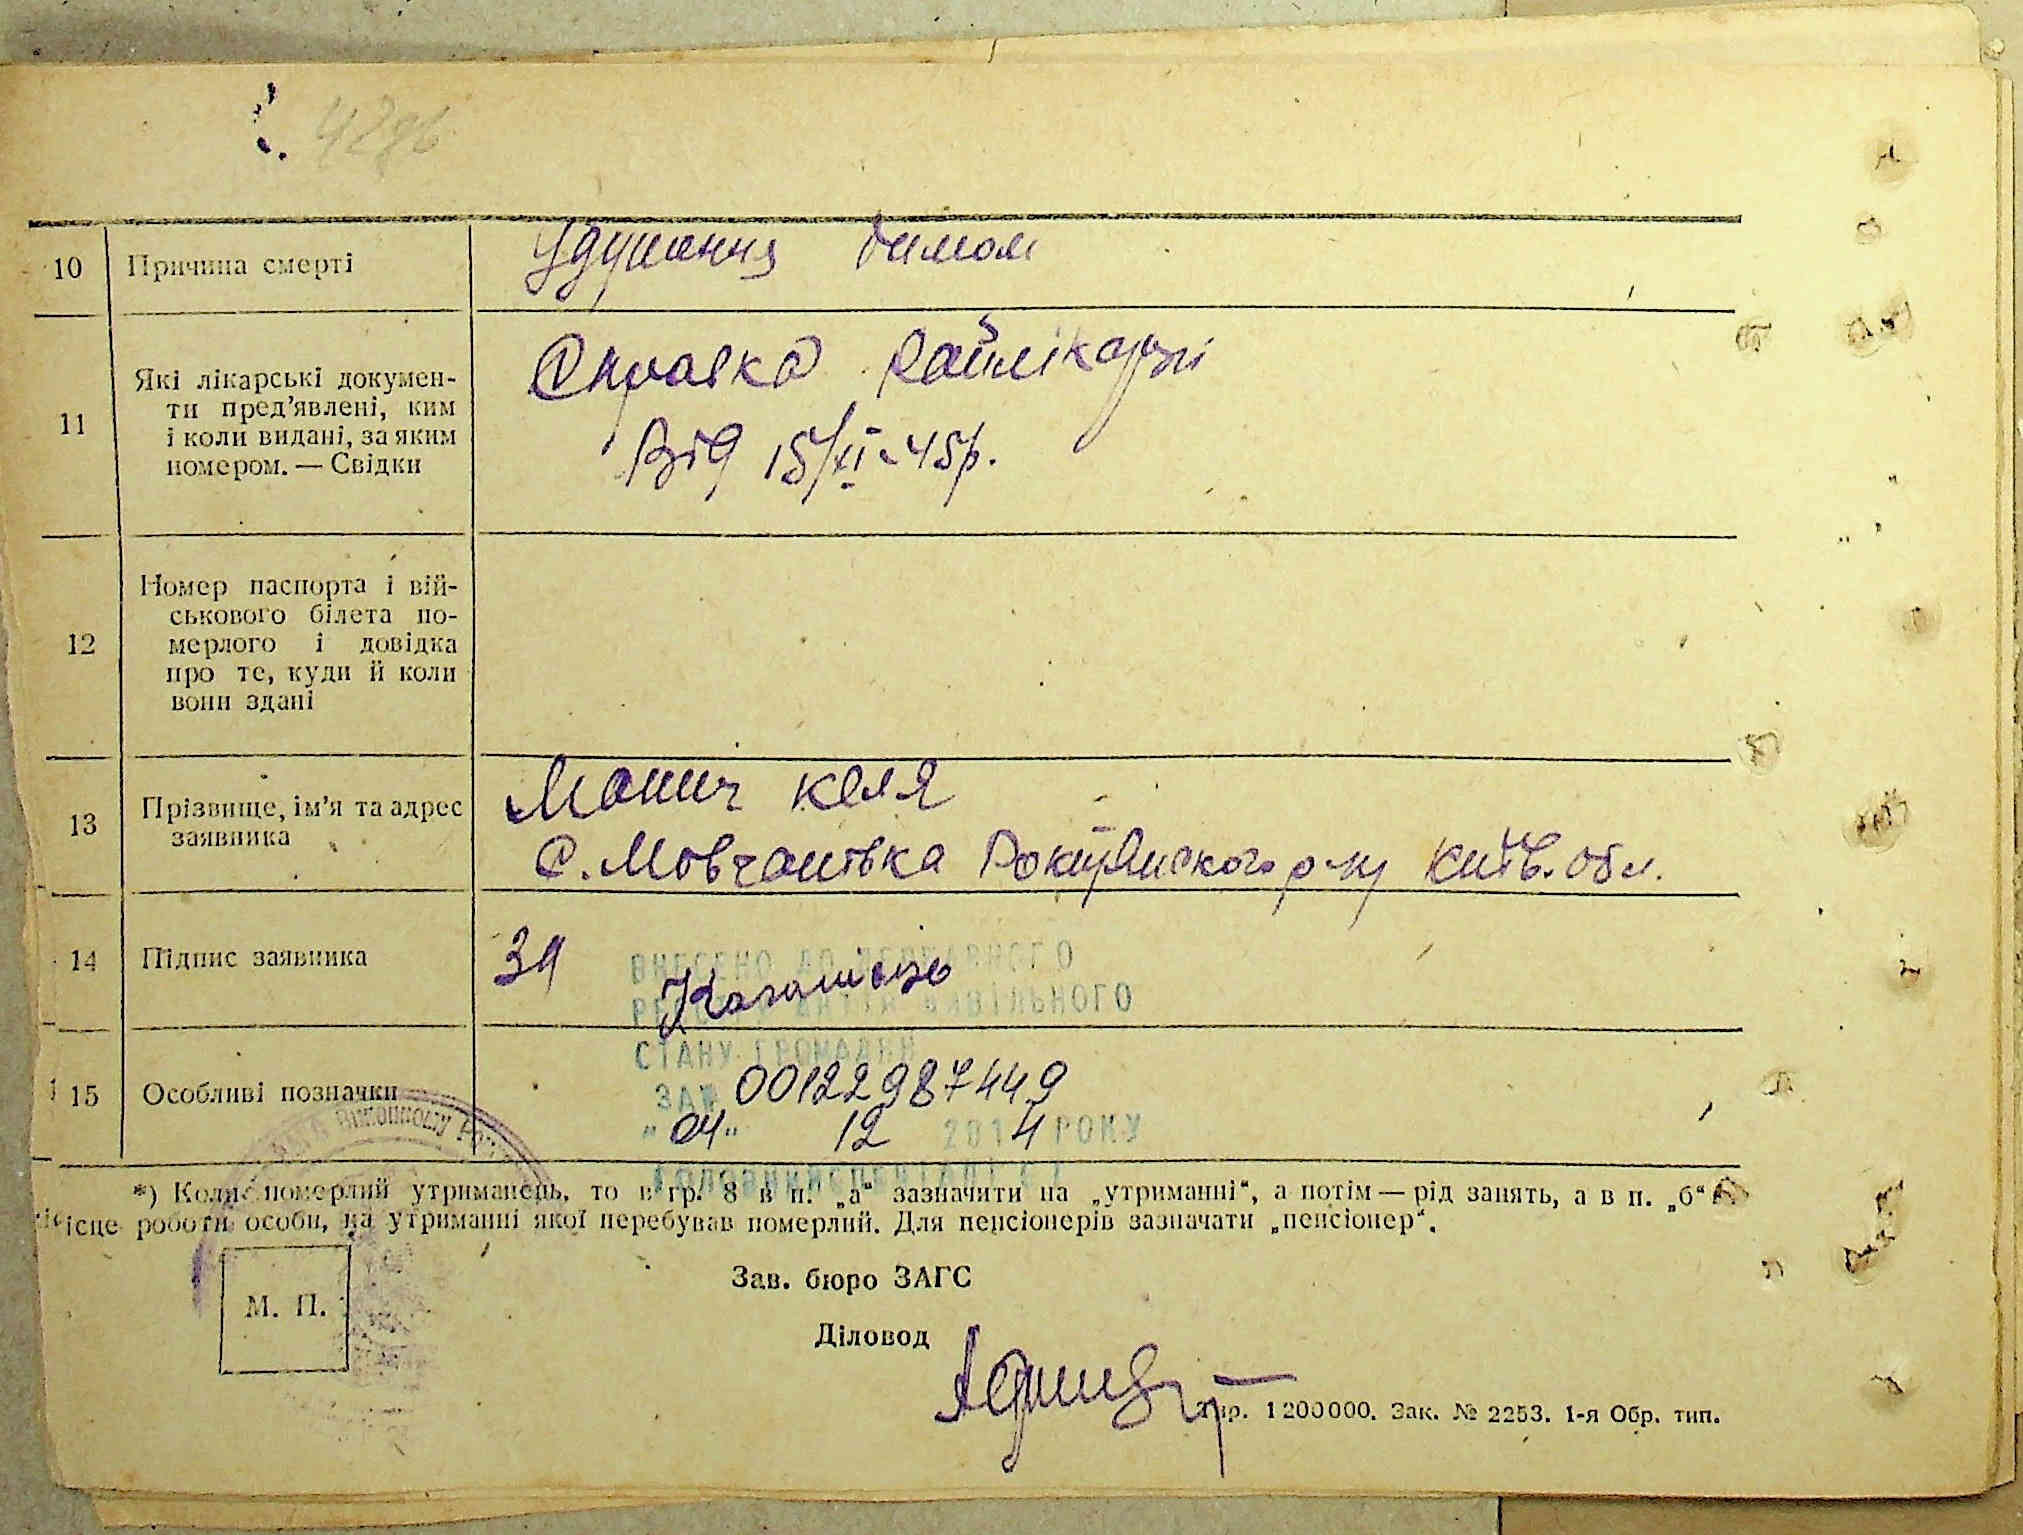 42зв
10 Причина смерті Удушення димом
11 Які лікарські докумен-
ти пред'явлені, ким
і коли видані, за яким
номером. — Свідки
Справка Райлікарні
Від 15/XI-45р.
12 Номер паспорта і вій-
ськового білета по-
мерлого і довідка
про те, куди й коли
вони здані
13 Прізвище, ім'я та адрес
заявника
Манич Коля
с. Мовчанівка Рокитянского р-ну Київ. обл.
14 Підпис заявника За
ВНЕСЕНО ДО ДЕРЖАВНОГО
РЕЄСТРУ АКТІВ ЦИВІЛЬНОГО
СТАНУ ГРОМАДЯН
15 Особливі позначки
ЗА № 00122987449
"04" 12 2014 РОКУ
Головний спеціаліст
*) Коли померлий утриманець, то в гр. 8 в п. „а“ зазначити на „утриманні“, а потім — рід занять, а в п. „б“
місце роботи особи, на утриманні якої перебував померлий. Для пенсіонерів зазначати „пенсіонер“.
Зав. бюро ЗАГС
М. П.
Діловод
Тир. 1200000. Зак. № 2253. 1-я Обр. тип.